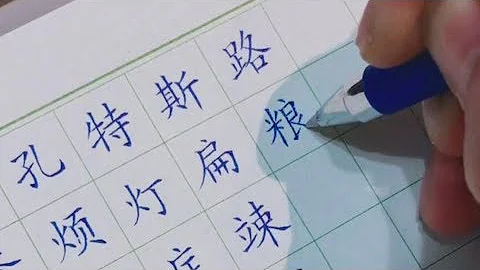 孔特斯路
烦灯扁粮
竦